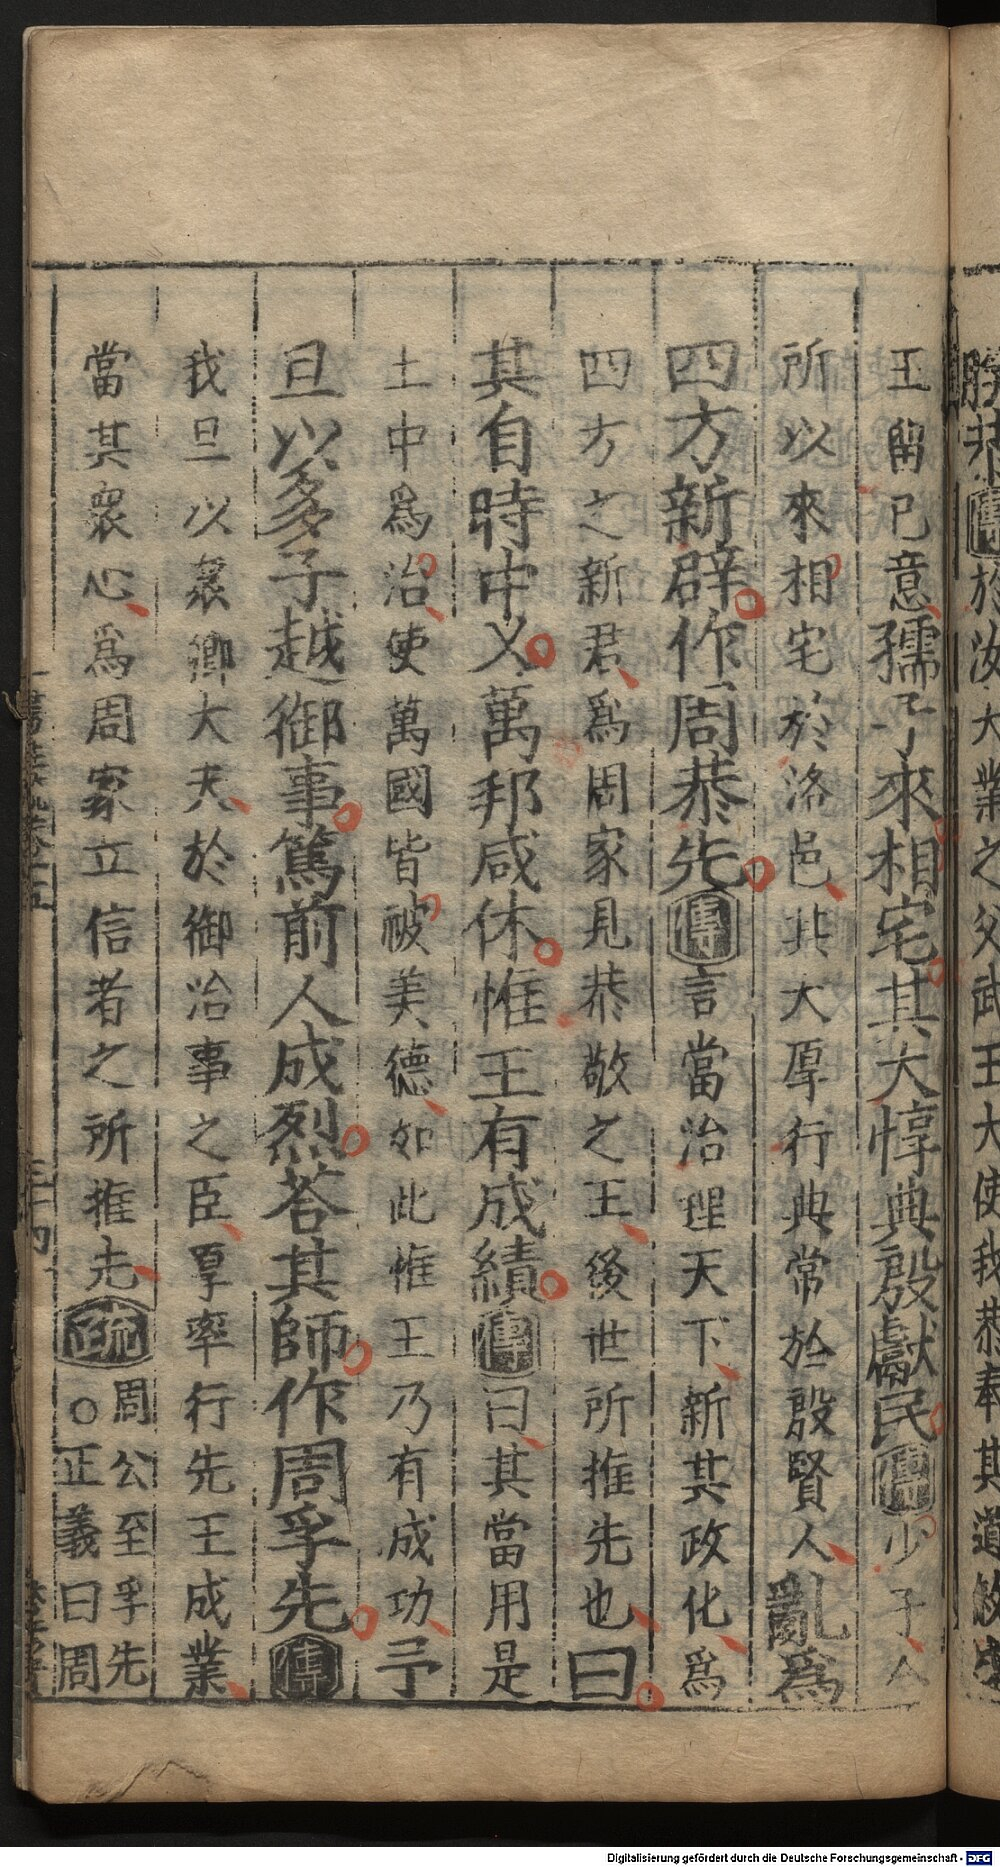 於汝大業之父武王大使我恭奉其道
王留已意孺子來相宅其大惇典殷獻民傳少子今
所以來相宅於洛邑其大厚行典常於殷賢人亂為
四方新辟作周恭先傳言當治理天下新其政化爲
四方之新君爲周家見恭敬之王後世所推先也曰
其自時中乂萬邦咸休惟王有成績傳曰其當用是
土中爲治使萬國皆被美德如此惟王乃有成功予
旦以多子越御事篤前人成烈荅其師作周孚先傳
我旦以衆卿大夫於御治事之臣厚率行先王成業
當其衆心爲周家立信者之所推先疏周公至孚先
○正義曰周
Digitalisierung gefördert durch die Deutsche Forschungsgemeinschaft - DFG